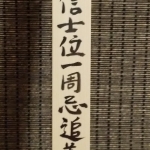 信士位一周忌追善